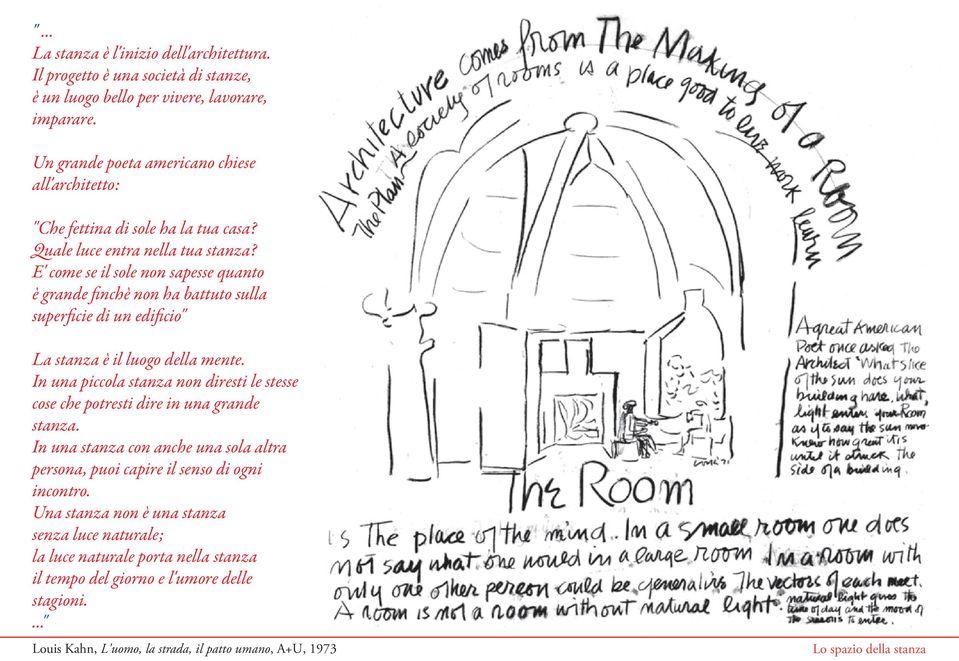 "...
La stanza è l'inizio dell'architettura.
Il progetto è una società di stanze,
è un luogo bello per vivere, lavorare,
imparare.
Un grande poeta americano chiese
all'architetto:
"Che fettina di sole ha la tua casa?
Quale luce entra nella tua stanza?
E' come se il sole non sapesse quanto
è grande finchè non ha battuto sulla
superficie di un edificio"
La stanza è il luogo della mente.
In una piccola stanza non diresti le stesse
cose che potresti dire in una grande
stanza.
In una stanza con anche una sola altra
persona, puoi capire il senso di ogni
incontro.
Una stanza non è una stanza
senza luce naturale;
la luce naturale porta nella stanza
il tempo del giorno e l'umore delle
stagioni.
..."
Architecture comes from The Making of a Room
The Plan A society of rooms is a place good to live work learn
A great American
Poet once asked The
Architect 'What slice
of the sun does your
building have, what
light enters your Room
as if to say the sun never
knew how great it is
until it struck the
side of a building.
The Room
is The place of the mind.. In a small room one does
not say what one would in a large room In a room with
only one other person could be generative The vectors of each meet.
A room is not a room without natural light.
natural light gives the
time of day and the mood of
the seasons to enter.
Louis Kahn, L'uomo, la strada, il patto umano, A+U, 1973
Lo spazio della stanza